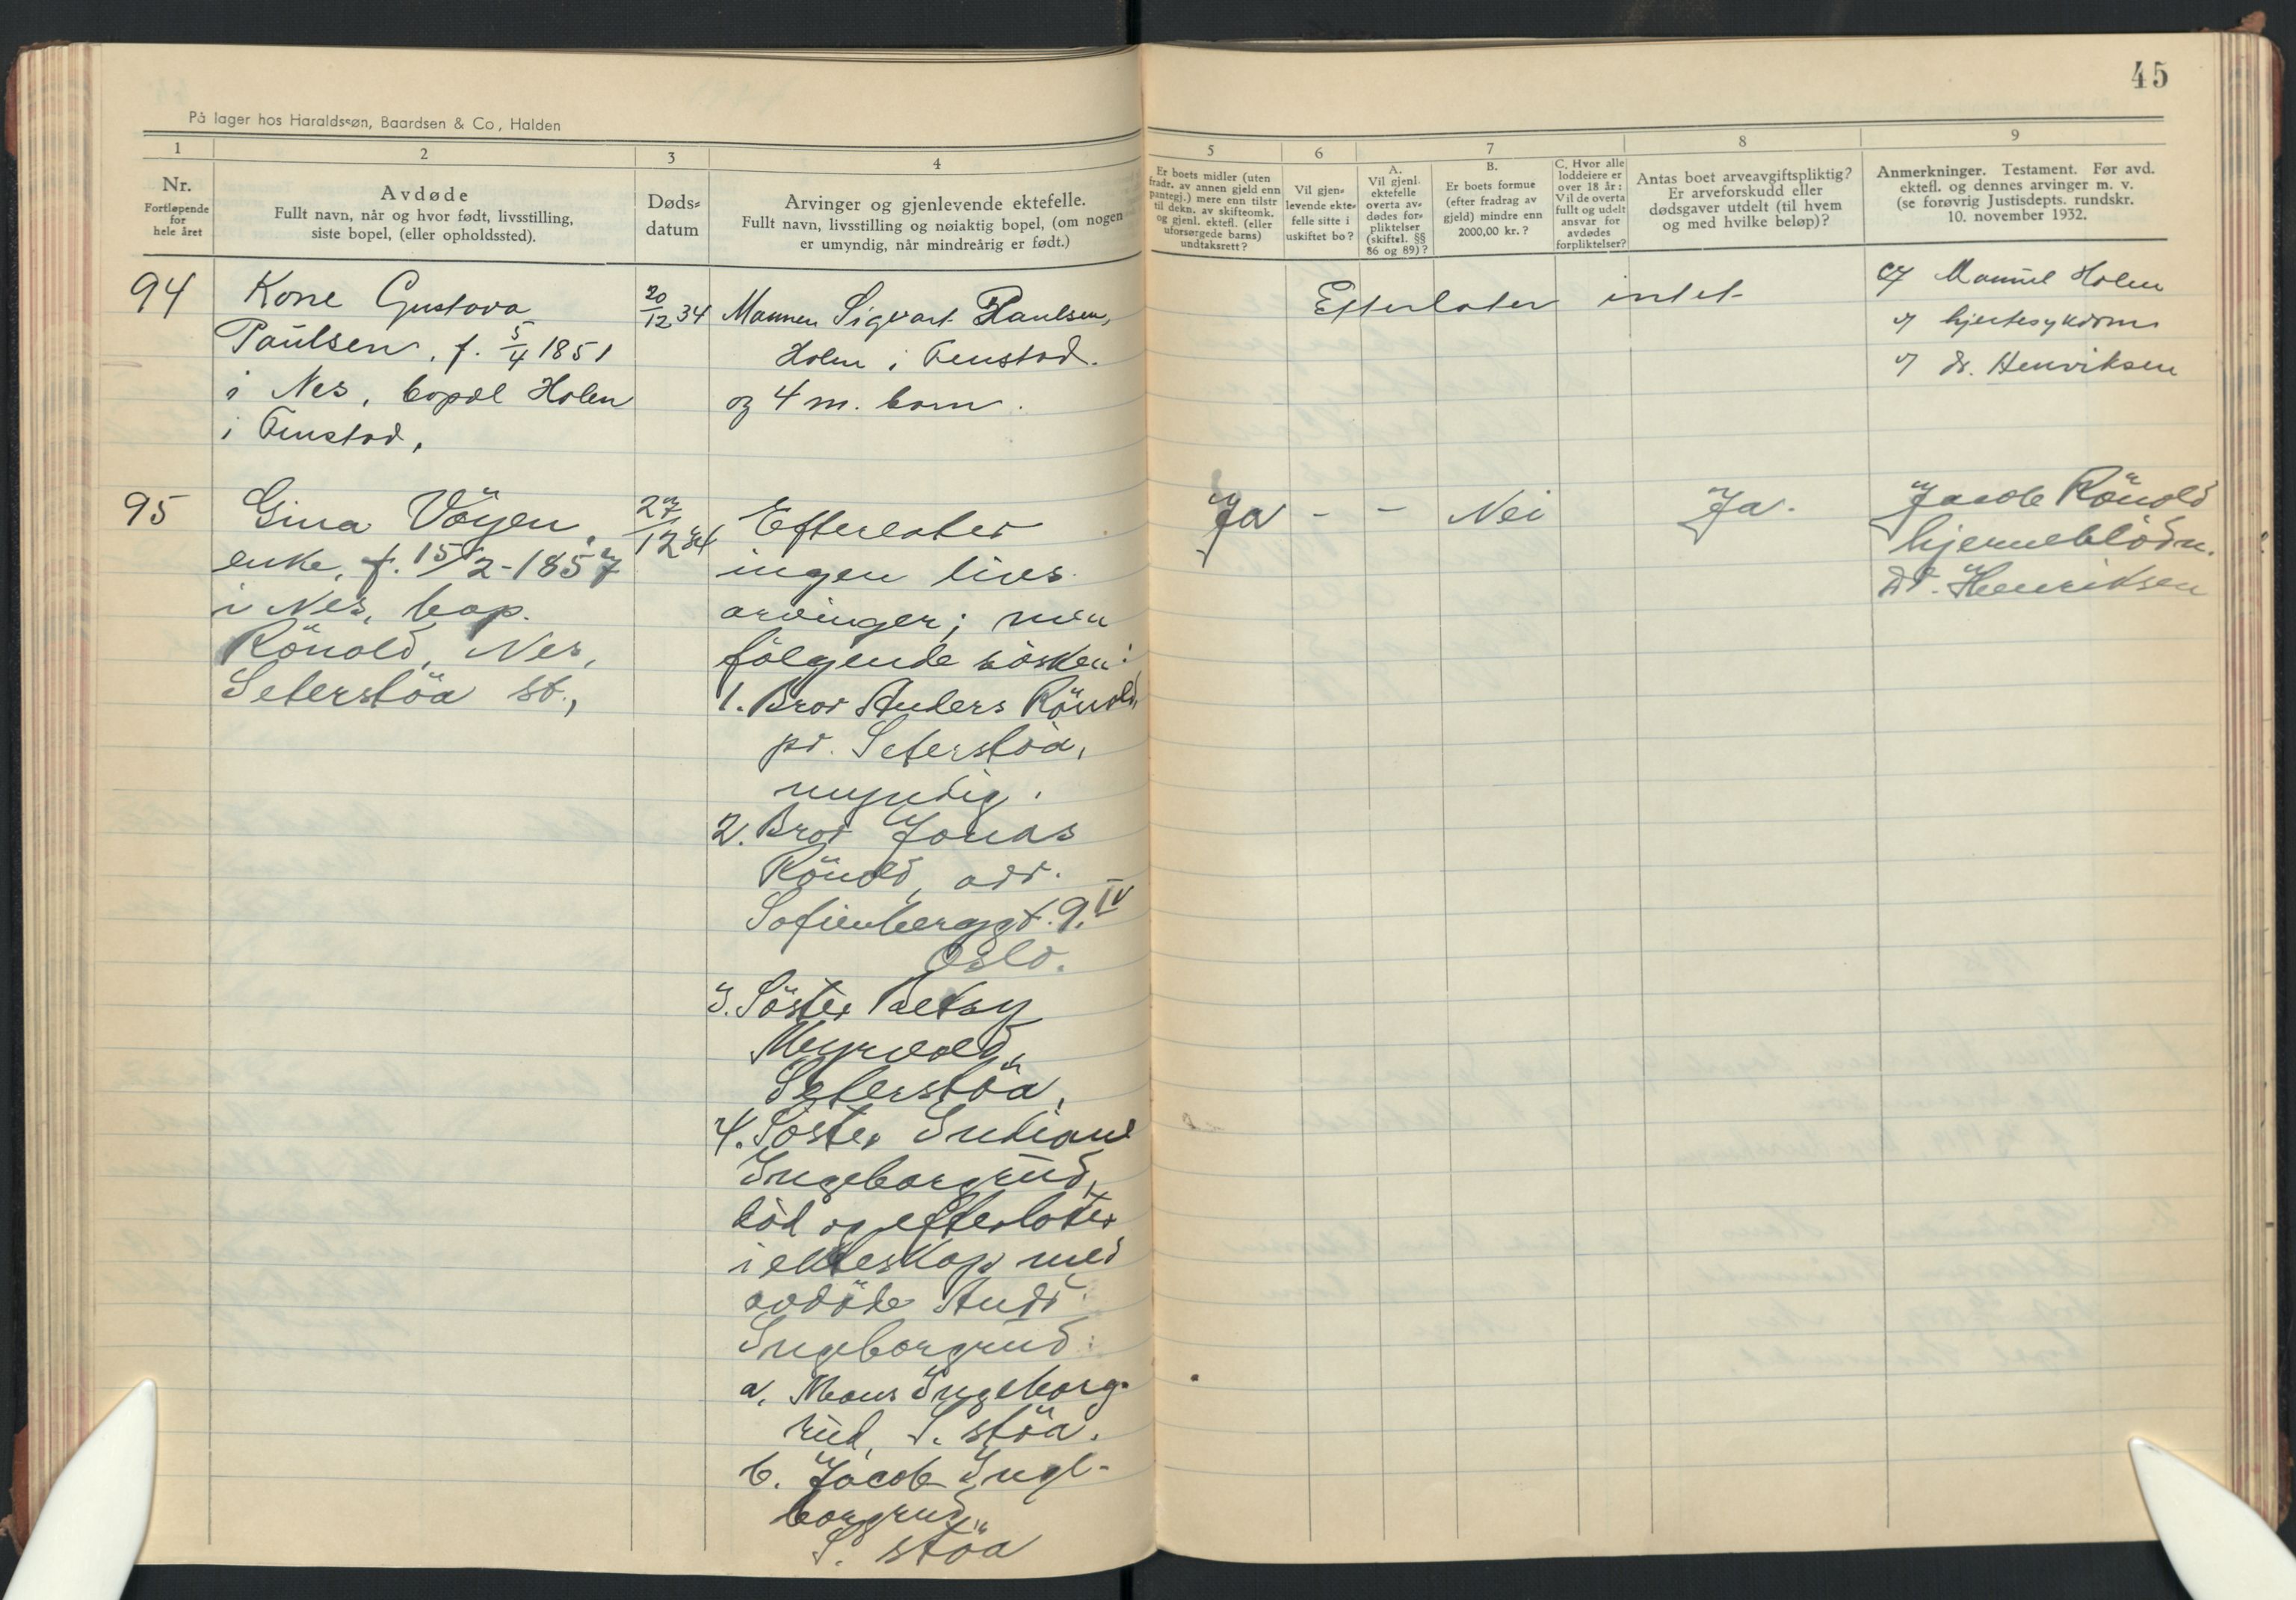 45
På lager hos Haraldssøn, Baardsen & Co, Halden
1
2
3
4
5
6
7
8
9
Nr.
Fortløpende
for
hele året
Avdøde
Fullt navn, når og hvor født, livsstilling,
siste bopel, (eller opholdssted).
Døds-
datum
Arvinger og gjenlevende ektefelle.
Fullt navn, livsstilling og nøiaktig bopel, (om nogen
er umyndig, når mindreårig er født.)
Er boets midler (uten
fradr. av annen gjeld enn
pantegj.) mere enn tilstr
til dekn. av skifteomk.
og gjenl. ektefl. (eller
uforsørgede barns)
undtaksrett?
Vil gjen-
levende ekte-
felle sitte i
uskiftet bo?
A.
Vil gjenl.
ektefelle
overta av-
dødes for-
pliktelser
(skiftel. §§
86 og 89)?
B.
Er boets formue
(efter fradrag av
gjeld) mindre enn
2000,00 kr.?
C. Hvor alle
loddeiere er
over 18 år:
Vil de overta
fullt og udelt
ansvar for
avdødes
forpliktelser?
Antas boet arveavgiftspliktig?
Er arveforskudd eller
dødsgaver utdelt (til hvem
og med hvilke beløp)?
Anmerkninger. Testament. Før avd.
ektefl. og dennes arvinger m. v.
(se forøvrig Justisdepts. rundskr.
10. november 1932.
94
Kone Gustava
Paulsen, f. 5/4 1851
i Nes, bopel Holen
i Fenstad,
20/12 34
Mannen Sigvart Paulsen,
Holen i Fenstad.
og 4 m. barn.
Efterlater intet
Manuel Holen
hjertesykdom
dr. Henriksen
95
Gina Vöyen,
enke, f. 15/2-1857
i Nes, bop.
Rönold, Nes,
Seterstöa st.,
27/12 34
Efterlater
ingen livs
arvinger; men
fölgende sösken:
1. Bror Anders Rönold,
pr. Seterstöa,
myndig.
2. Bror Jonas
Rönold, adr.
Sofienberggt. 9. IV
Oslo.
3. Söster
Myrvold,
Seterstöa,
4. Söster
Ingeborgrud,
död og efterlater
i ekteskap med
avdöde Andr.
Ingeborgrud:
a. Ingeborg-
rud, S. stöa.
b. Jacob Inge-
borgrud,
S. stöa
Ja - - Nei Ja.
Jacob Rönold
hjerneblödn.
Dr. Henriksen